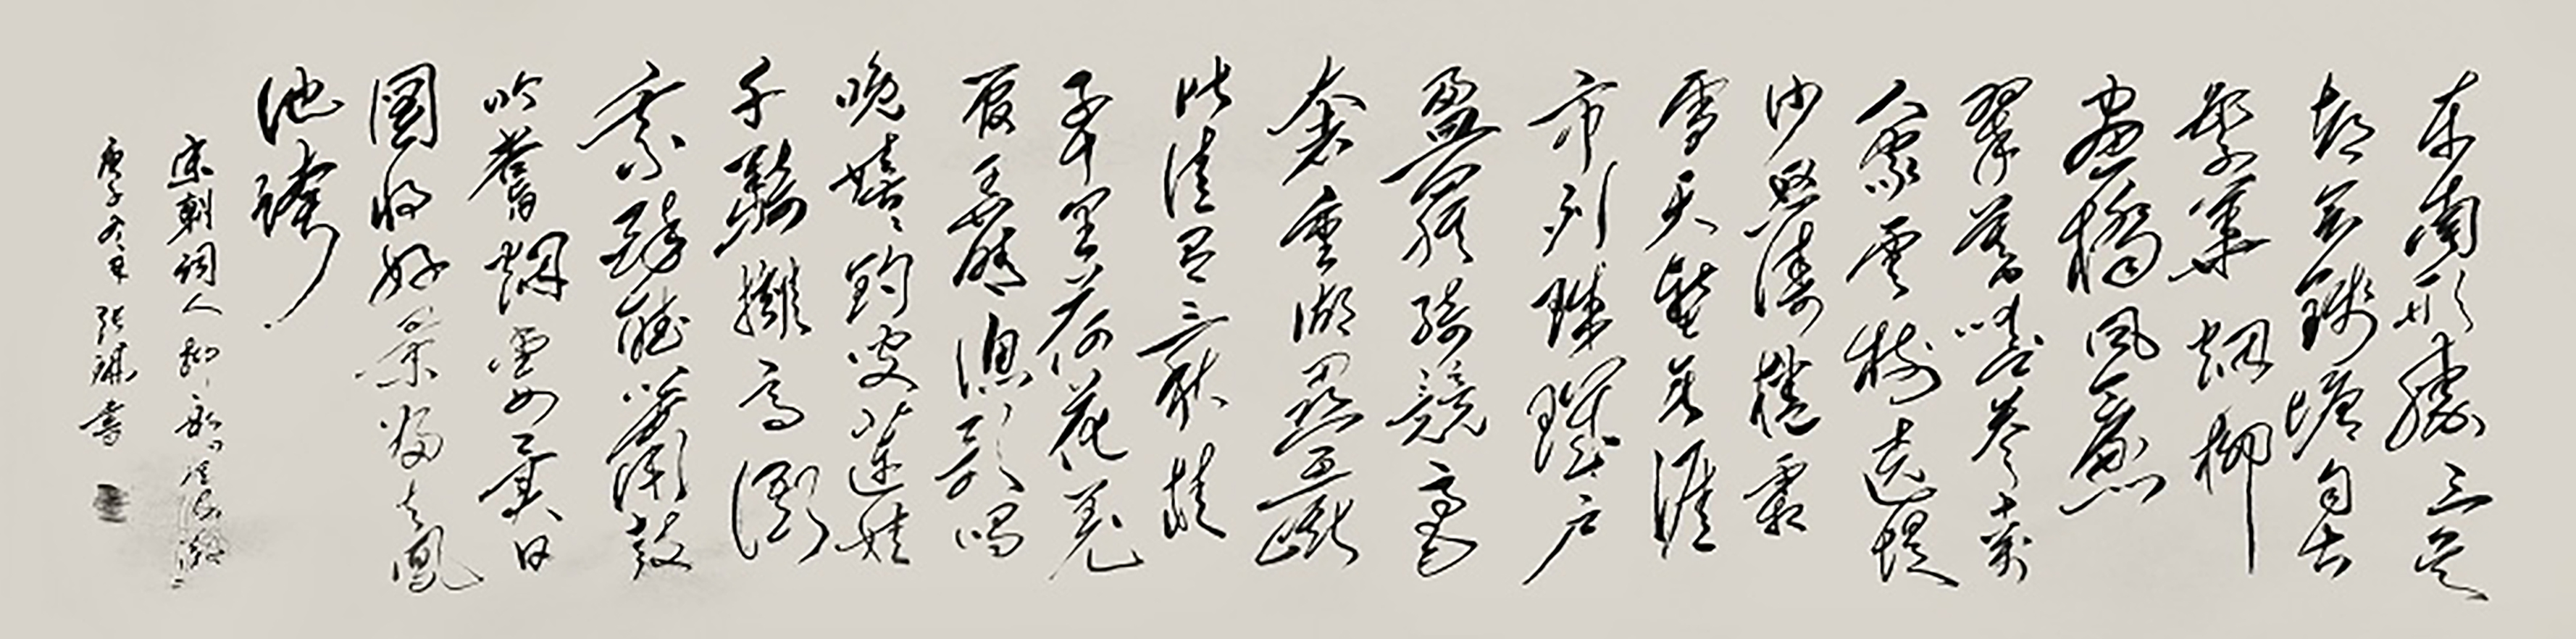 东南形勝三吴
都会錢塘自古
繁華烟柳
画橋風簾
翠幕參十萬
人家雲樹遶堤
沙怒濤捲霜
雪天塹無涯
市列珠璣户
盈羅綺競豪
奢重湖叠巘
佳有三秋桂
子十里荷花羌
管弄晴漁歌唱
晚嬉嬉釣叟蓮娃
千騎擁高衙
乘醉聽簫鼓
吟賞烟霞異日
圖将好景歸去鳳
池誇
宋朝詞人柳永望海潮
庚子冬月張琪書